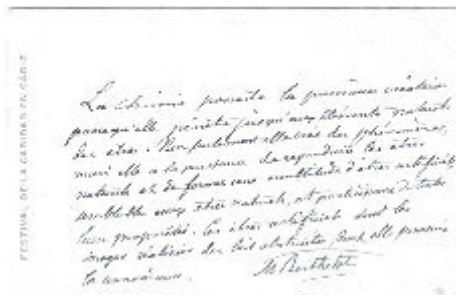 FESTIVAL DE LA CARIDAD EN CADIZ
La chimie possède la puissance créatrice
parce qu'elle pénètre jusqu'aux éléments naturels
des êtres. Non seulement elle crée des phénomènes,
mais elle a la puissance de reproduire les êtres
naturels et de former une multitude d'êtres artificiels,
semblables aux êtres naturels, et participant de toutes
leurs propriétés. Ces êtres artificiels sont les
images réalisées des lois abstraites, dont elle poursuit
la connaissance.
M. Berthelot